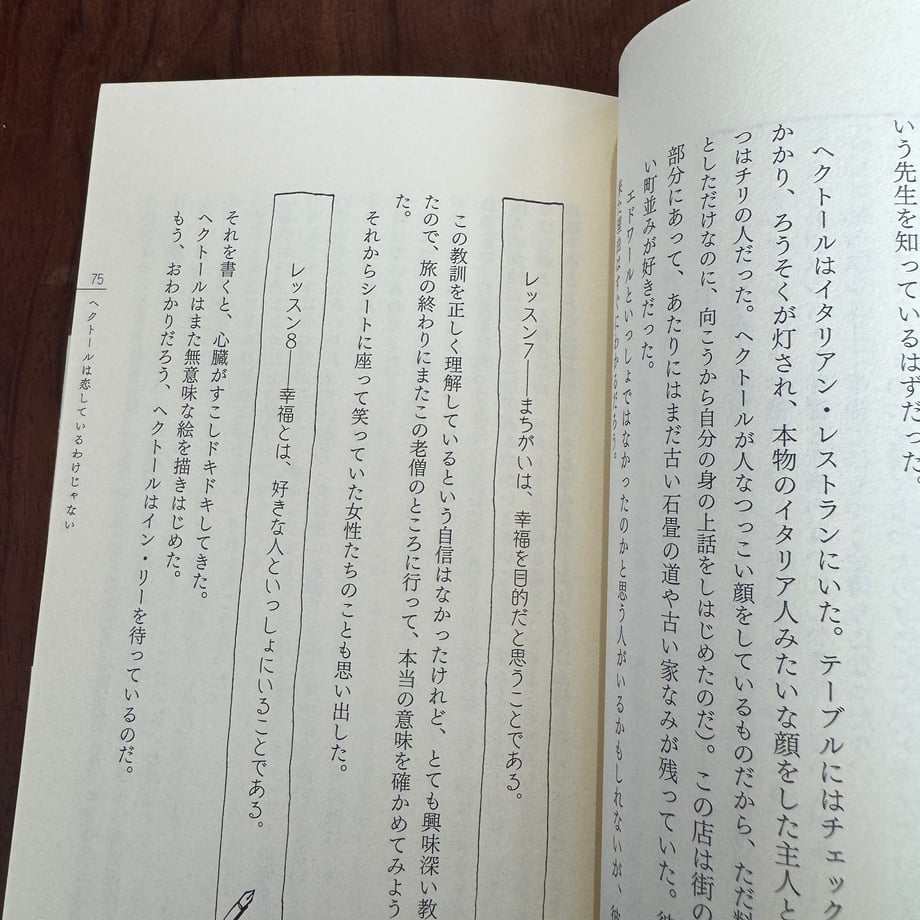 いう先生を知っているはずだった。
ヘクトールはイタリアン・レストランにいた。テーブルにはチェック
かかり、ろうそくが灯され、本物のイタリア人みたいな顔をした主人と
つはチリの人だった。ヘクトールが人なつっこい顔をしているものだから、ただ料
としただけなのに、向こうから自分の身の上話をしはじめたのだ)。この店は街の
部分にあって、あたりにはまだ古い石畳の道や古い家なみが残っていた。彼
い町並みが好きだった。
エドワールといっしょではなかったのかと思う人がいるかもしれないが、彼
わかるだろう。
レッスン7― まちがいは、幸福を目的だと思うことである。
この教訓を正しく理解しているという自信はなかったけれど、とても興味深い教
たので、旅の終わりにまたこの老僧のところに行って、本当の意味を確かめてみよう
た。
それからシートに座って笑っていた女性たちのことも思い出した。
レッスン8― 幸福とは、好きな人といっしょにいることである。
それを書くと、心臓がすこしドキドキしてきた。
ヘクトールはまた無意味な絵を描きはじめた。
もう、おわかりだろう、ヘクトールはイン・リーを待っているのだ。
75
ヘクトールは恋しているわけじゃない